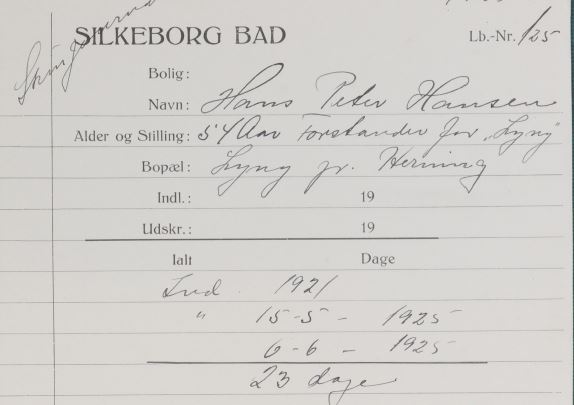 SILKEBORG BAD
Lb.-Nr. 1/25
Bolig:
Navn: Hans Peter Hansen
Alder og Stilling: 54 Aar Forstander for "Lyng"
Bopæl: Lyng pr. Herning
Indl.: 19
Udskr.: 19
Ialt Dage
Ind. 1921
" 15-5 - 1925
6-6 - 1925
23 dage